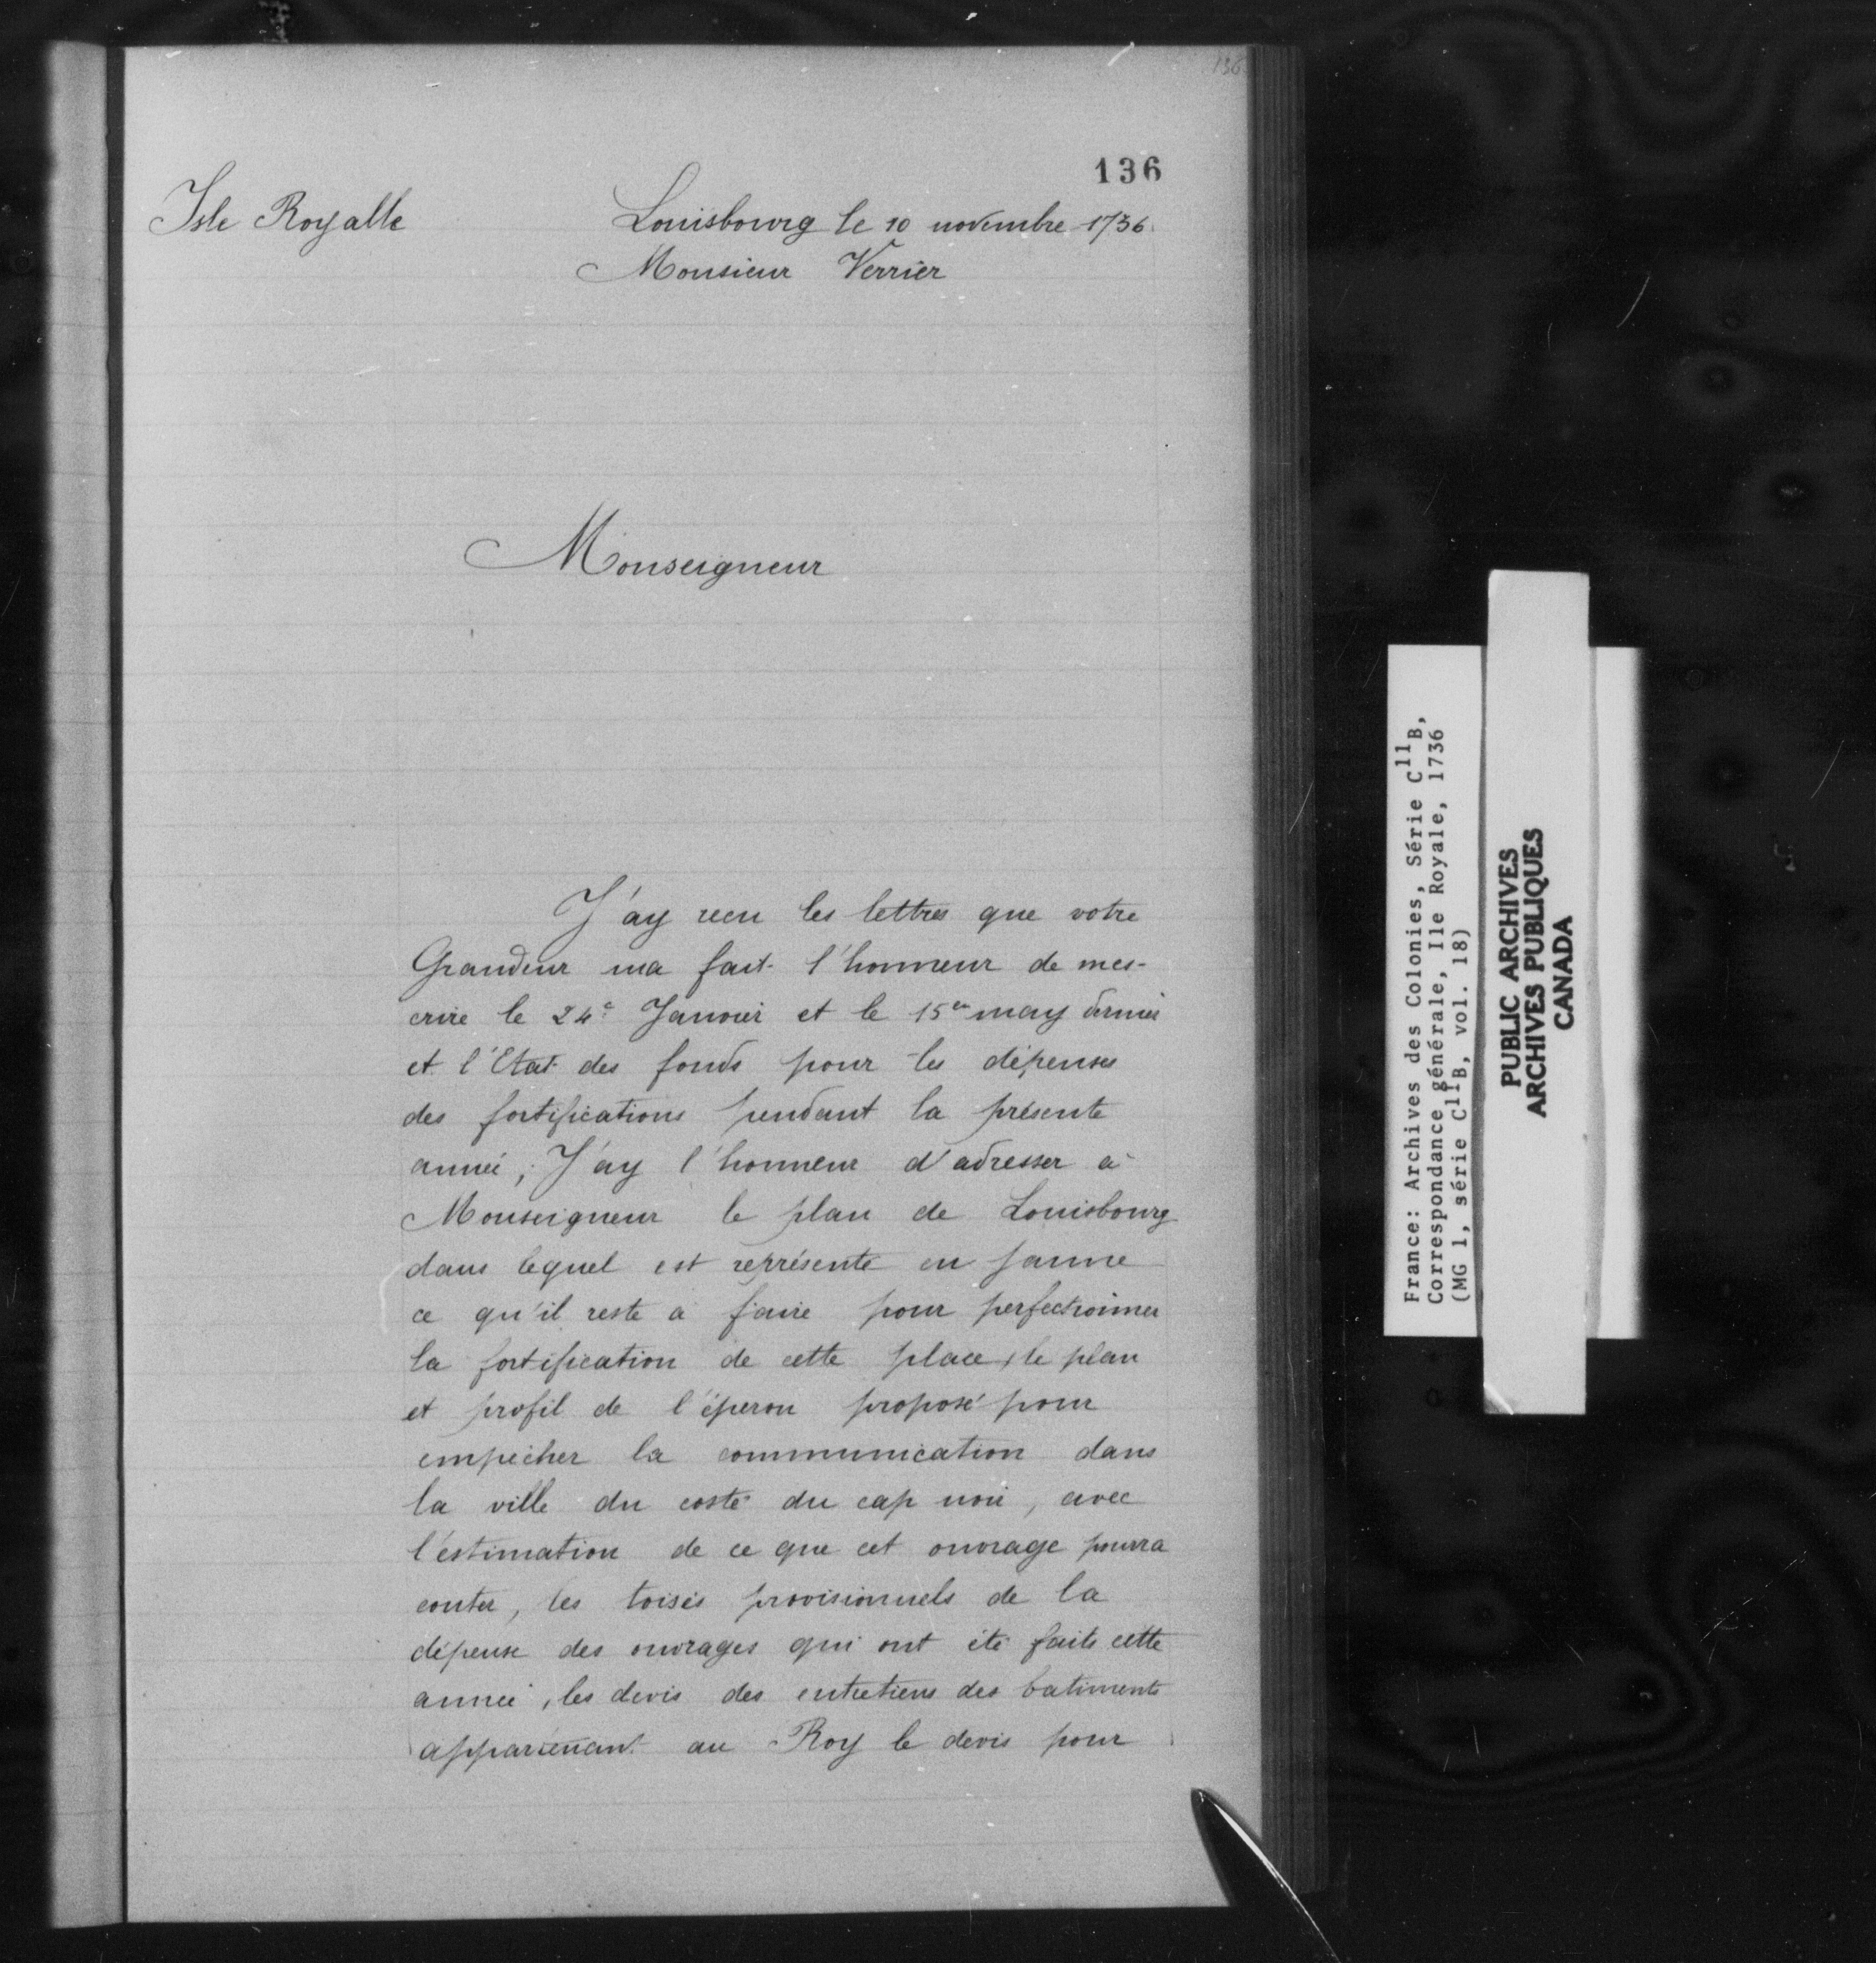 136
136
Isle Royalle
Louisbourg le 10 novembre 1736.
Monsieur Verrier
Monseigneur
J'ay recu les lettres que votre
Grandeur ma fait l'honneur de mes-
crire le 24e Janvier et le 15er may dernier
et l'Etat des fonds pour les dépenses
des fortifications pendant la présente
année; J'ay l'honneur d'adresser a
Monseigneur le plan de Louisbourg
dans lequel est représenté en jaune
ce qu'il reste a faire pour perfectionner
la fortification de cette place, le plan
et profil de l'éperon proposé pour
empecher la communication dans
la ville du costé du cap noir, avec
l'estimation de ce que cet ouvrage pourra
couter, les toisés provisionnels de la
dépense des ouvrages qui ont été faits cette
année, les devis des entretiens des batiments
appartenant au Roy le devis pour
France: Archives des Colonies, Série C11B,
Correspondance générale, Ile Royale, 1736
(MG 1, série C11B, vol. 18)
PUBLIC ARCHIVES
ARCHIVES PUBLIQUES
CANADA